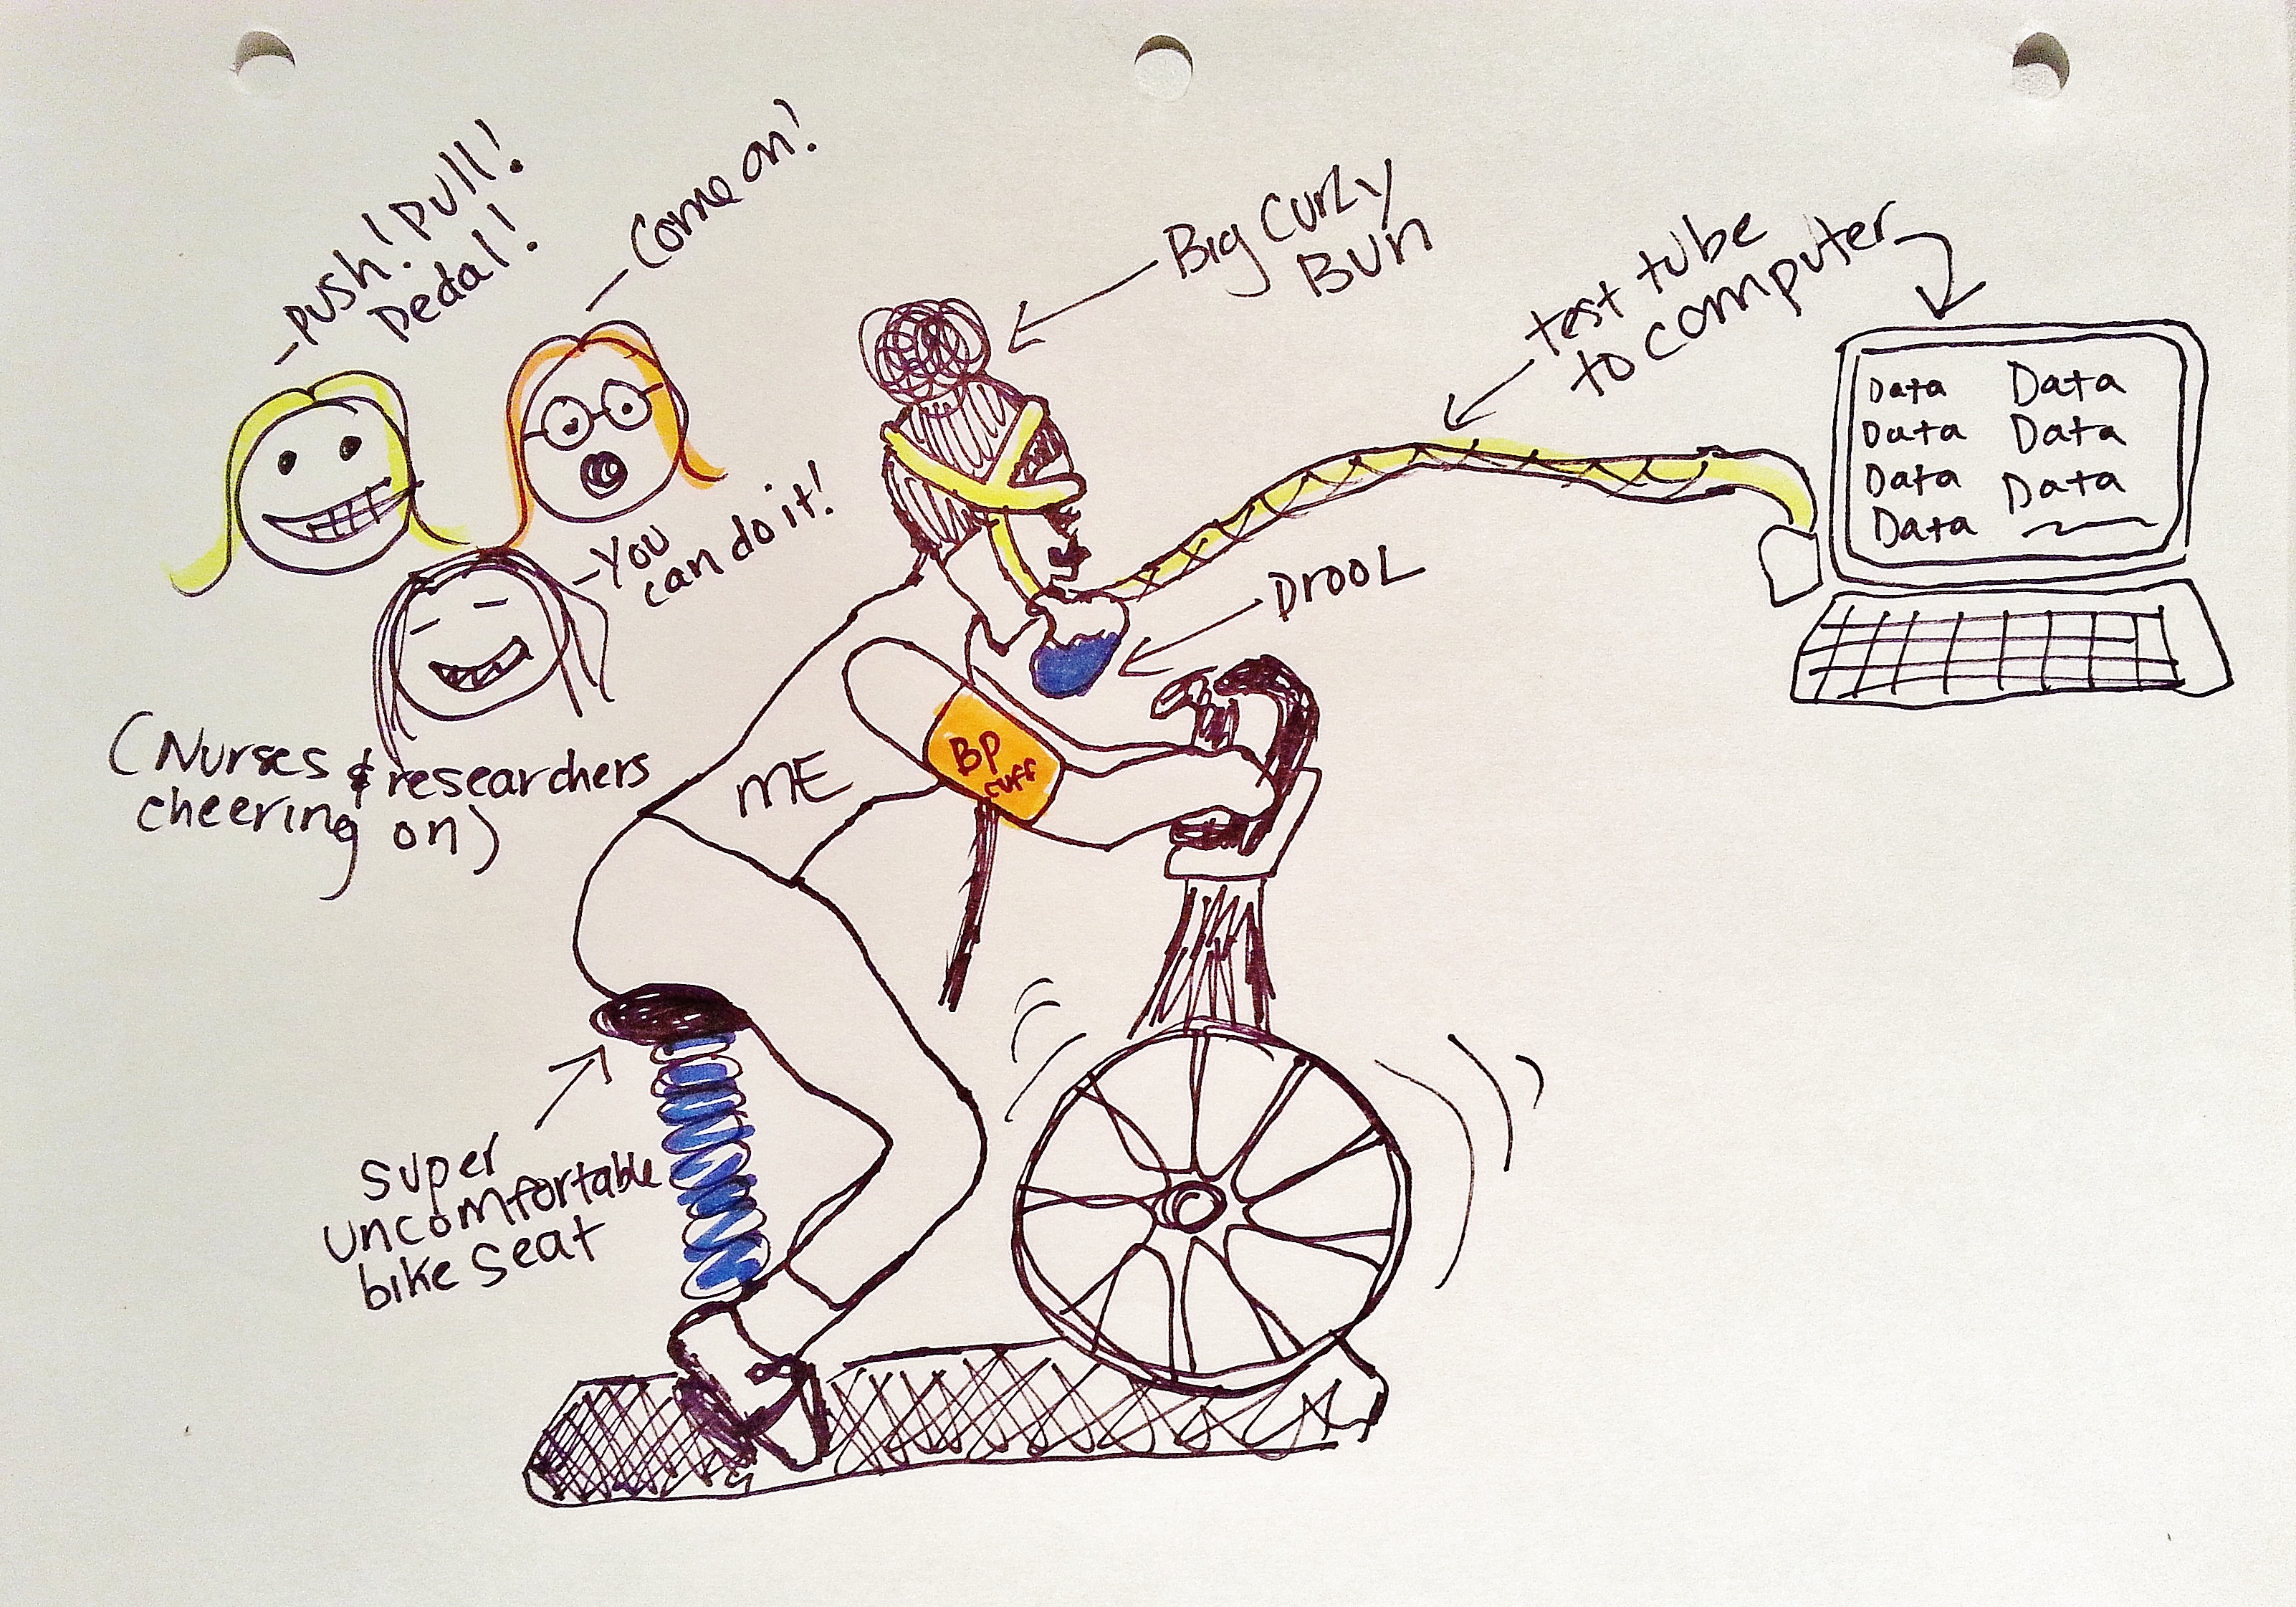 -push! pull!
pedal!
-Come on!
-You
can do it!
(Nurses & researchers
cheering on)
Big Curly
Bun
test tube
to computer
Data Data
Data Data
Data Data
Data
Drool
BP
cuff
ME
super
uncomfortable
bike seat